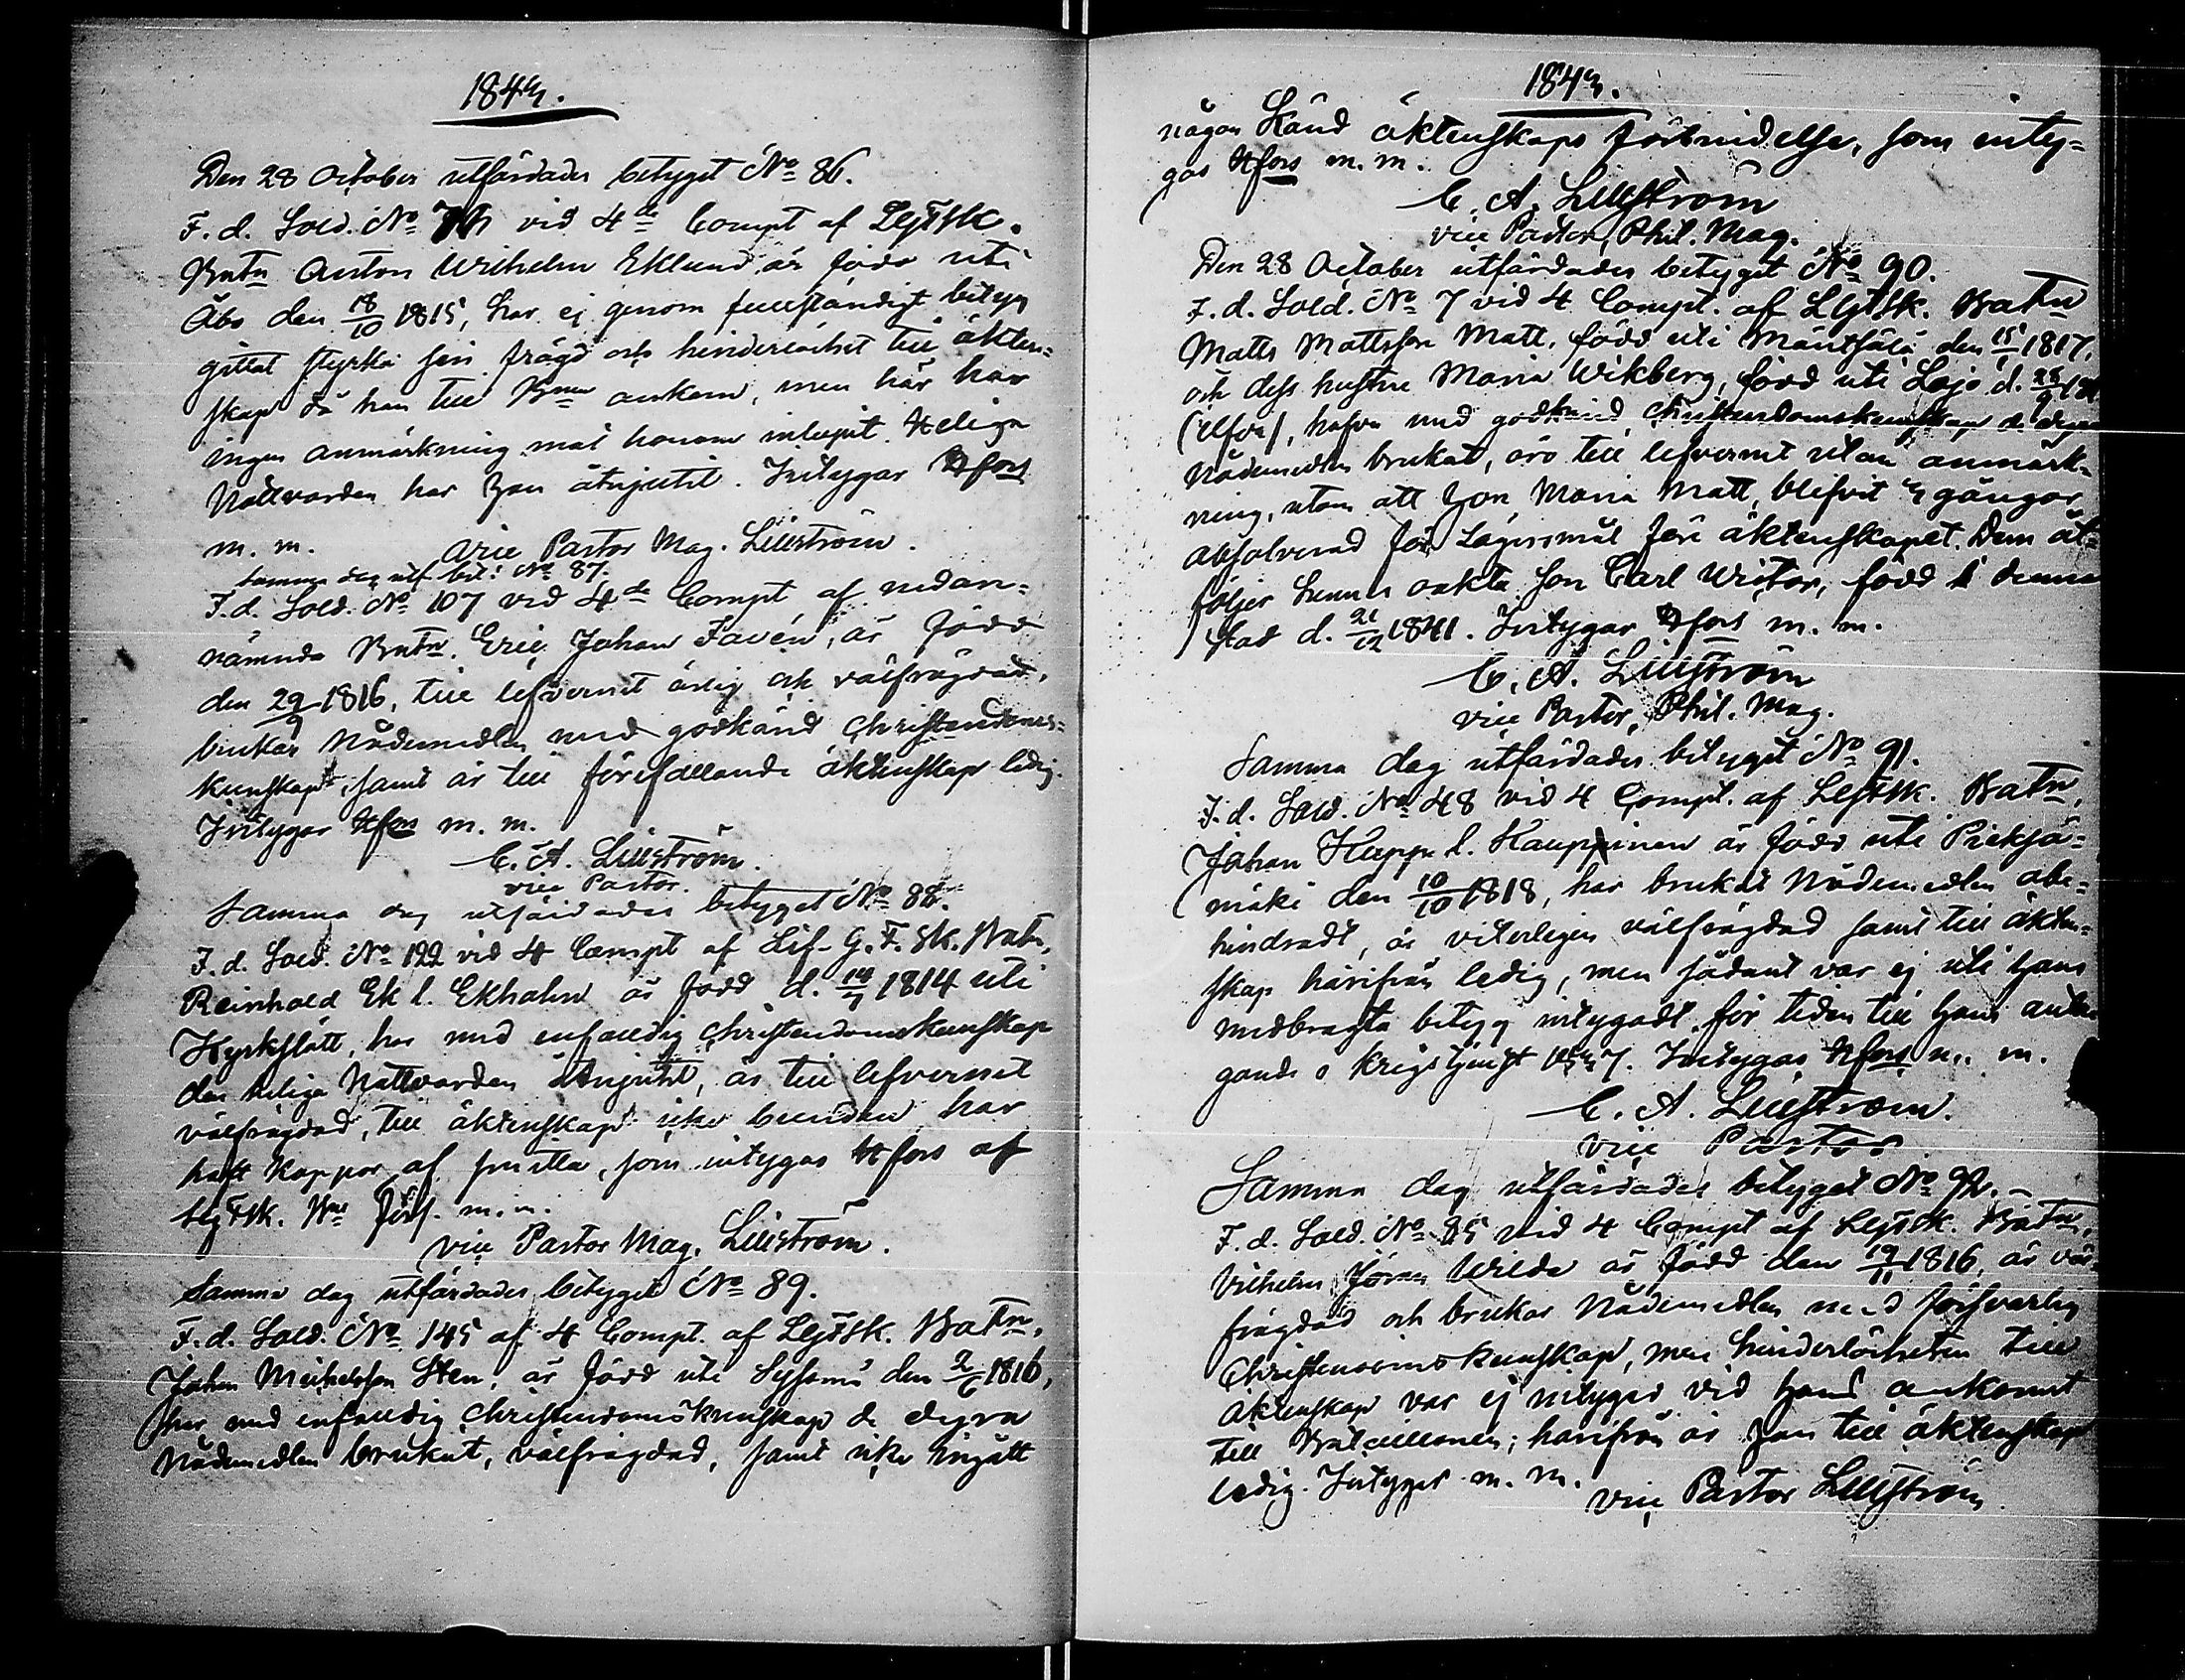 1843.
Den 28 October utfärdades betyget No 86.
F. d. Sold. No vid 4de Compt af LgFSk.
Batn Anton Wilhelm Eklund är född uti
Åbo den 18/10 1815, har ej genom fullständigt betyg
gittat styrka sin frägd och hinderlöshet till äkten=
skap då han till Bnen ankom, men här har
ingen anmärkning mot honom inlupit. Heliga
Nattvarden har han åtnjutit. Intygar Hfors
m. m. Vice Pastor Mag. Lillström.
Samma dag utf. bet. No 87.
F. d. Sold. No 107 vid 4de Compt af nedan=
nämnda Batn. Eric Johan Favén, är född
den 29/9 1816, till lefvernet ärlig och välfrägdad,
brukar Nådemedlen med godkänd Christendoms=
kunskap, samt är till förefallande äktenskap ledig.
Intygar Hfors m. m.
C. A. Lillström.
vice Pastor.
Samma dag utfärdades betyget No 88.
F. d. Sold. No 122 vid 4 Compt af Lif-G. F. Sk. Batn,
Reinhold Ek l. Ekholm är född d. 14/7 1814 uti
Kyrkslätt, har med enfaldig Christendomskunskap
den heliga Nattvarden åtnjutit, är till lefvernet
välfrägdad, till äktenskap icke bunden, har
haft koppor af smitta, som intygas Hfors af
LgFSk. Bns Förs. m. m.
vice Pastor Mag. Lillström.
Samma dag utfärdades betyget No 89.
F. d. Sold. No 145 af 4 Compt. af LgFSk. Batn,
Johan Michelsson Sten, är född uti Sysmä den 2/6 1816,
har med enfaldig Christendomskunskap de dyra
Nådemedlen brukat, välfrägdad, samt icke ingått
1843.
någon känd äktenskaps förbindelse, som inty=
gas Hfors m. m.
C. A. Lillström
vice Pastor, Phil. Mag.
Den 28 October utfärdades betyget No 90.
F. d. Sold. No 7 vid 4 Compt. af LgFSk. Batn
Matts Mattsson Matt, född uti Mäntsälä den 15/1 1817,
och dess hustru Maria Wikberg, född uti Lojo d. 28/9
, hafva med godkänd Christendomskunskap de dyra
Nådemedlen brukat, äro till lefvernet utan anmärk=
ning, utom att hon, Maria Matt, blefvit 2 gångor
absolverad för Lägersmål före äktenskapet. Dem åt=
följer hennes oäkta son Carl Victor, född i denna
stad d. 21/12 1841. Intygar Hfors m. m.
C. A. Lillström
vice Pastor, Phil. Mag.
Samma dag utfärdades betyget No 91.
F. d. Sold. No 48 vid 4 Compt. af LgFSk. Batn,
Johan Hopp l. Hauppinen är född uti Pieksä=
mäki den 10/10 1818, har brukat Nådemedlen obe=
hindradt, är viterligen välfrägdad samt till äkten=
skap härifrån ledig, men sådant var ej uti hans
medbragta betyg intygadt för tiden till hans anta
gande i krigstjenst 1837. Intygas Hfors m. m.
C. A. Lillström.
vice Pastor
Samma dag utfärdades betyget No 92.
F. d. Sold. No 85 vid 4 Compt af LgFSk. Batn,
Vilhelm Jöran Wilda är född den 19/11 1816, är väl=
frägdad och brukar Nådemedlen med försvarlig
Christendomskunskap, men hinderlösheten till
äktenskap var ej intygad vid hans ankomst
till Bataillonen; härifrån är han till äktenskap
ledig. Intygas m. m. vice Pastor Lillström